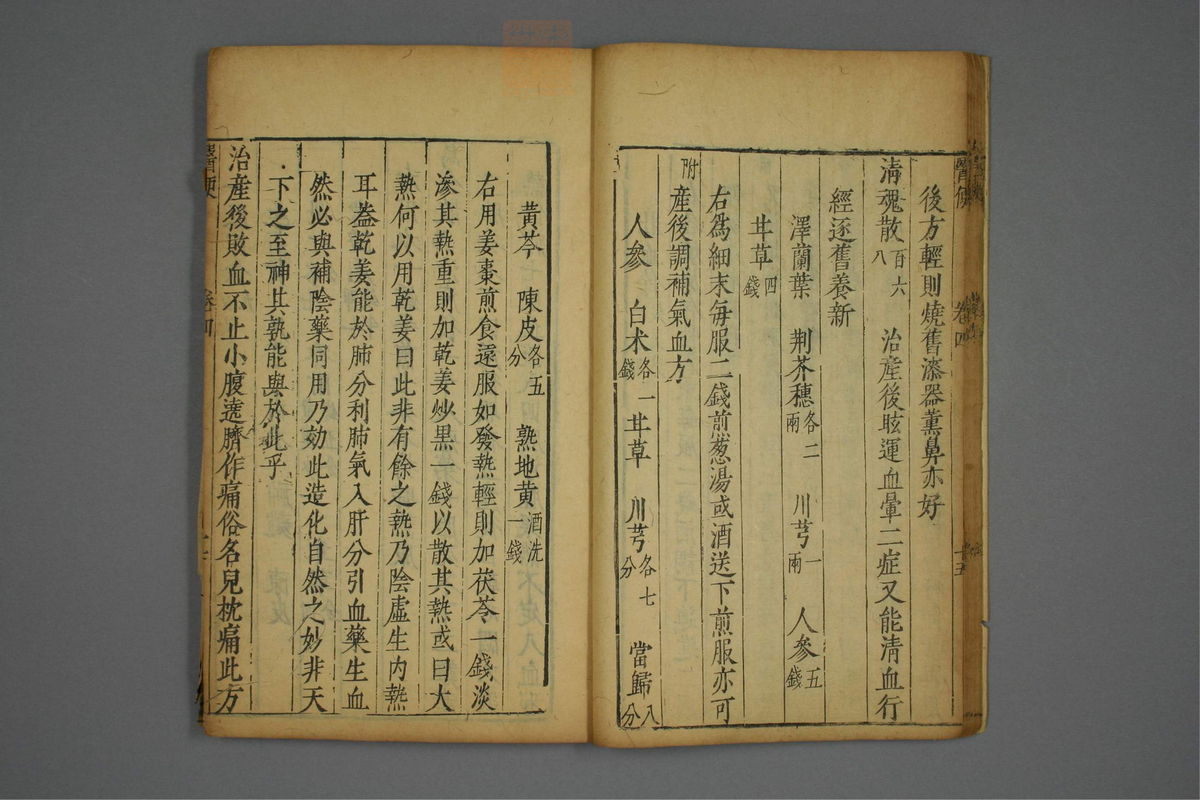 後方輕則燒舊漆器薰鼻亦好
清魂散百六八 治產後眩運血暈二症又能清血行
經逐舊養新
澤蘭葉 荆芥穗各二兩 川芎一兩 人參五錢
甘草四錢
右爲細末每服二錢煎葱湯或酒送下煎服亦可
附產後調補氣血方
人參 白朮各一錢 甘草 川芎各七分 當歸八分
黃芩 陳皮各五分 熟地黃酒洗一錢
右用姜棗煎食遠服如發熱輕則加茯苓一錢淡
滲其熱重則加乾姜炒黑一錢以散其熱或曰大
熱何以用乾姜曰此非有餘之熱乃陰虛生內熱
耳蓋乾姜能於肺分利肺氣入肝分引血藥生血
然必與補陰藥同用乃効此造化自然之妙非天
下之至神其孰能與於此乎
治產後敗血不止小腹遶臍作痛俗名兒枕痛此方
醫便 卷四